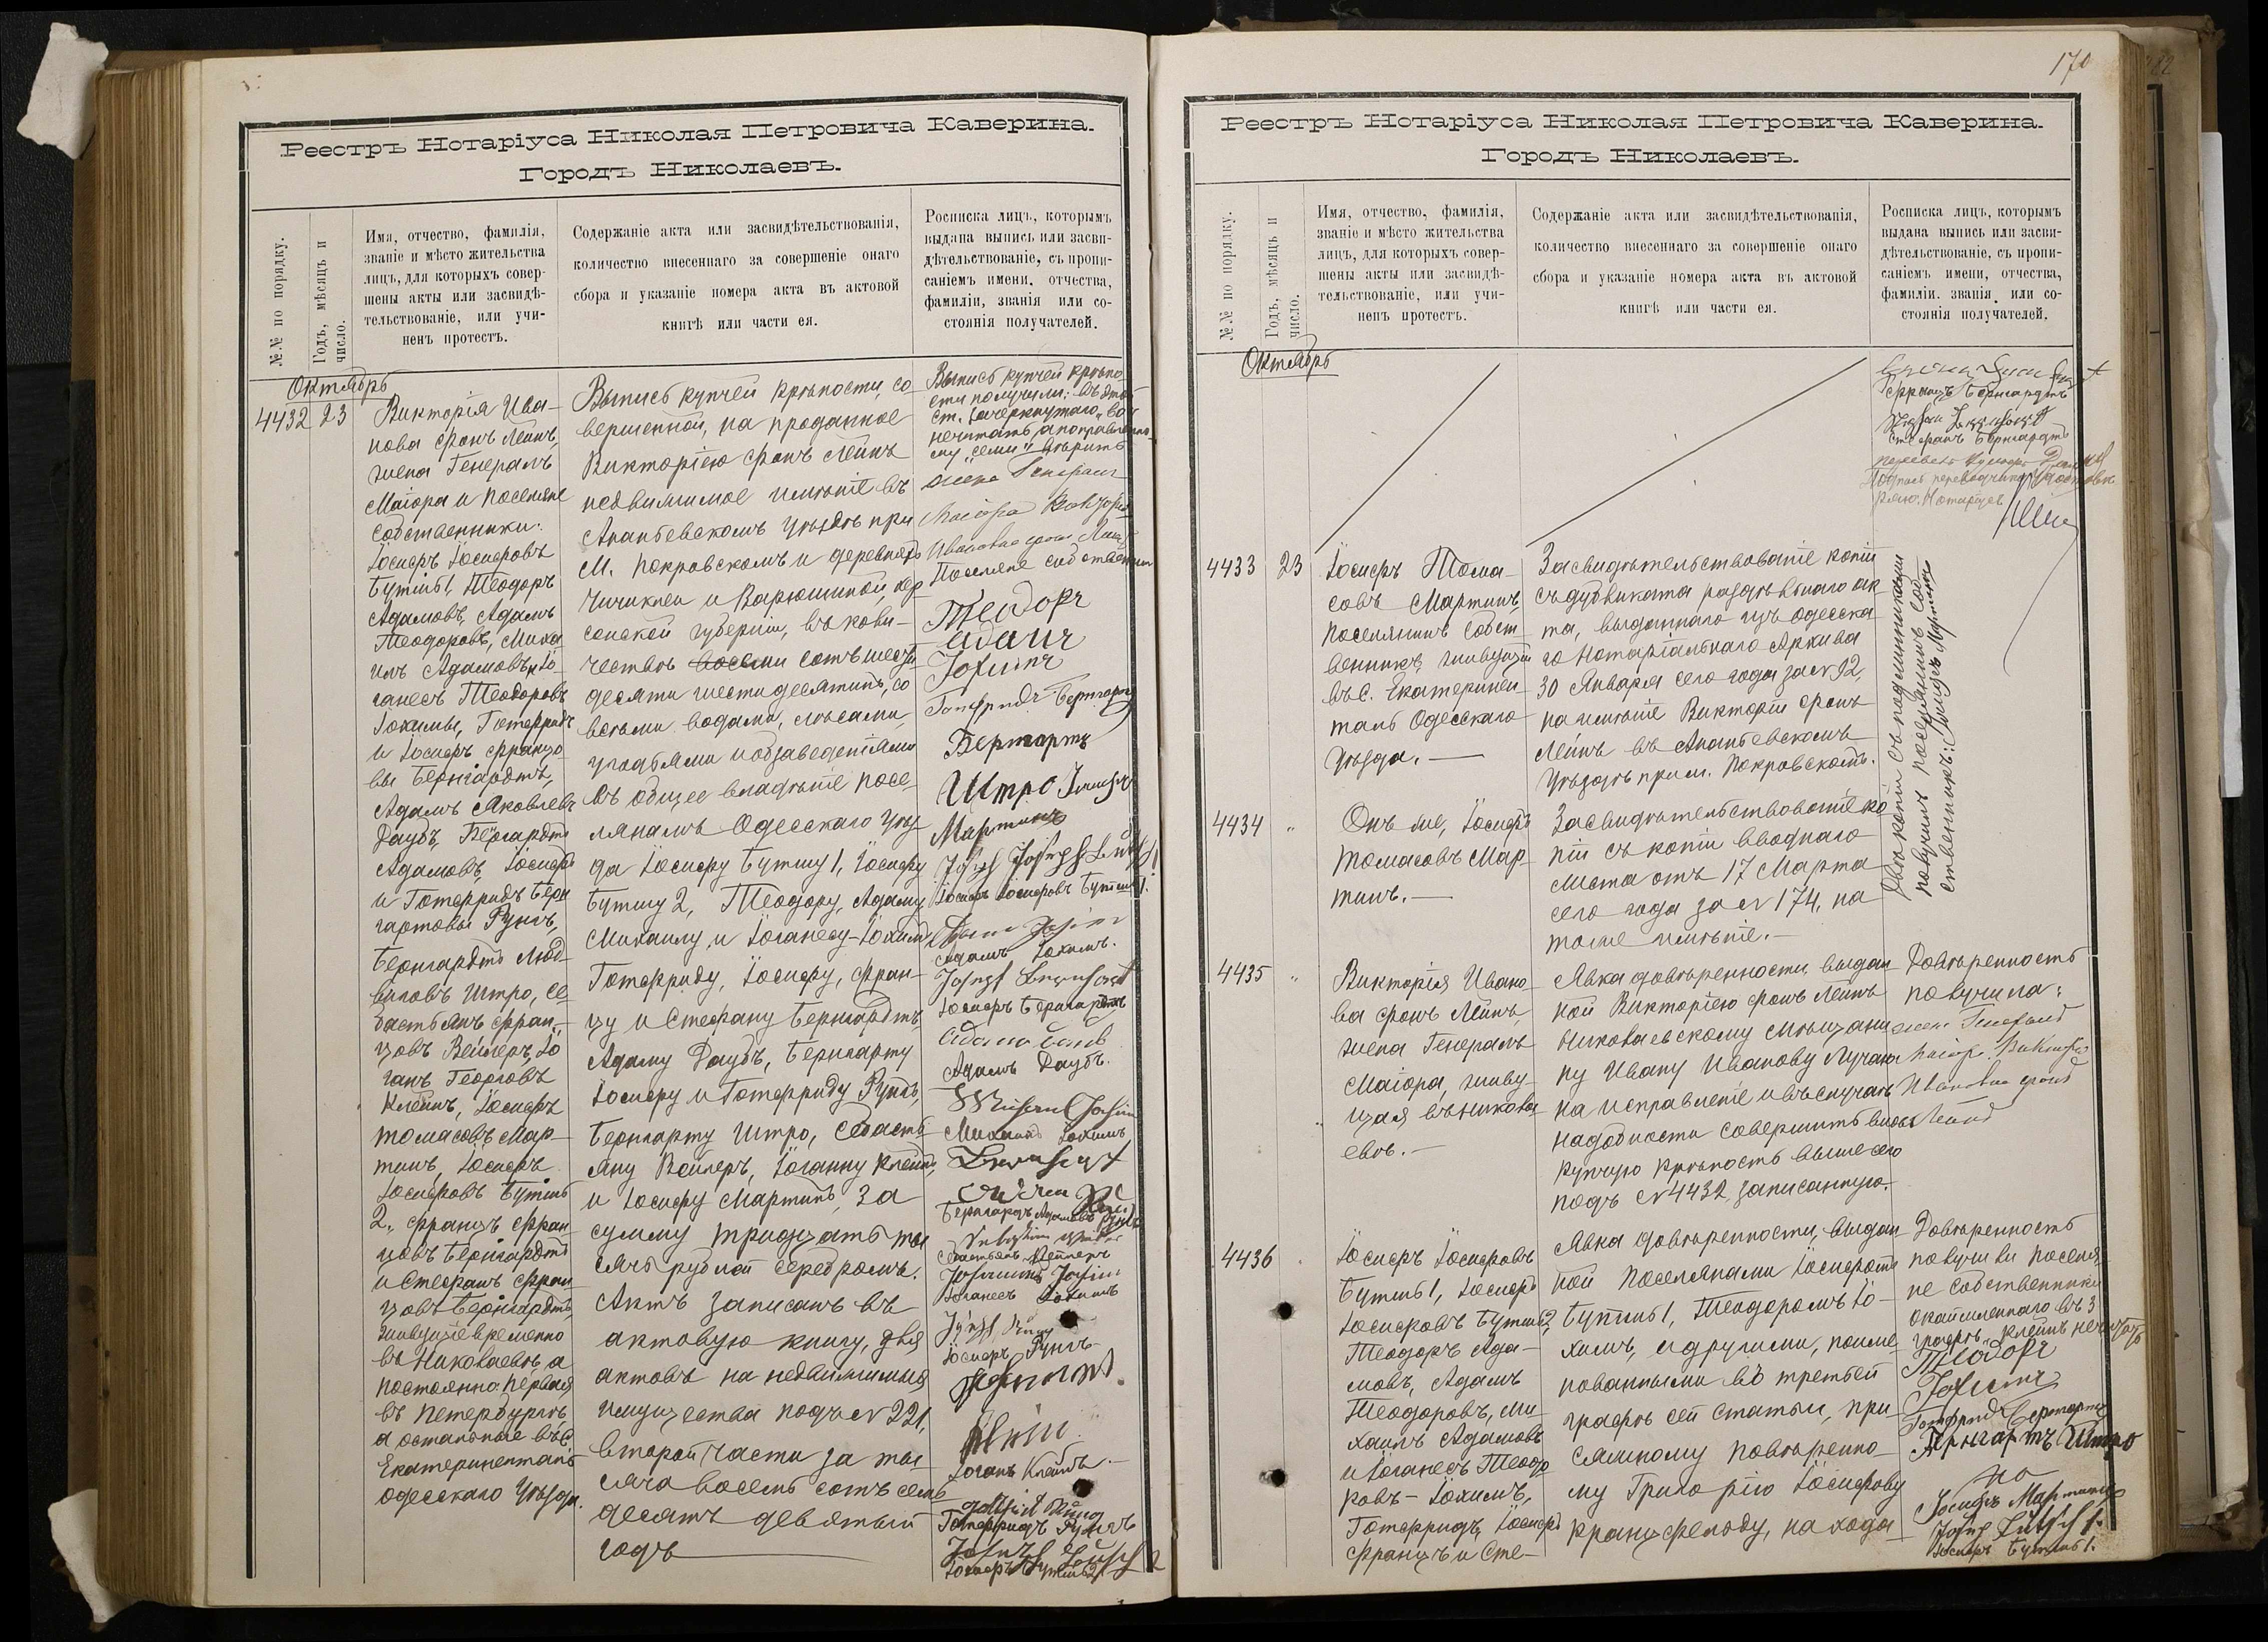 Реестръ Нотаріуса Николая Петровича Каверина.
Городъ Николаевъ.
№.№ по порядку.
Годъ, мѣсяцъ и
число.
Имя, отчество, фамилія,
званіе и мѣсто жительства
лицъ, для которыхъ совер-
шены акты или засвидѣ-
тельствованіе, или учи-
ненъ протестъ.
Содержаніе акта или засвидѣтельствованія,
количество внесеннаго за совершеніе онаго
сбора и указаніе номера акта въ актовой
книгѣ или части ея.
Росписка лицъ, которымъ
выдана выпись или засви-
дѣтельствованіе, съ пропи-
саніемъ имени, отчества,
фамиліи, званія или со-
стоянія получателей.
Октябрь
4432 23
Викторія Ива-
нова фонъ Лейнъ,
жена Генералъ
Маіора и поселяне
собственники:
Іосифъ Іосифовъ
Бутшъ 1, Теодоръ
Адамовъ, Адамъ
Теодоровъ, Миха
илъ Адамовъ, Іо-
ганесъ Теодоровъ
Іохимы, Готфридъ
и Іосифъ Францо
вы Бернгардтъ,
Адамъ Яковлевъ
Даубъ, Бернгардтъ
Адамовъ, Іосифъ
и Готфридъ Берн
гартовы Рунгъ,
Бернгардтъ Люд-
виговъ Штро, Се
бастьянъ Фран-
цовъ Вейлеръ, Іо
ганъ Георговъ
Клейнъ, Іосифъ
Томасовъ Мар-
тинъ, Іосифъ
Іосифовъ Бутшъ
2, Францъ Фран
цовъ Бернгардтъ
и Стефанъ Фран
цовъ Бернгардтъ,
живущіе временно
въ Николаевѣ, а
постоянно: первая
въ Петербургѣ,
а остальные въ с.
Екатериненталь
Одесскаго уѣзда.
Выпись купчей крѣпости, со
вершенной, на проданное
Викторіею фонъ Лейнъ
недвижимое имѣніе въ
Ананьевскомъ уѣздѣ при
м. Покровскомъ и деревняхъ
Чичиклеи и Варюшиной, Хер
сонской губерніи, въ коли-
чествѣ восьми сотъ шести
десяти шести десятинъ, со
всѣми водами, лѣсами,
усадьбами и обзаведеніями
въ общее владѣніе посе-
лянамъ Одесскаго уѣз-
да Іосифу Бутшу 1, Іосифу
Бутшу 2, Теодору, Адаму
Михаилу и Іоганесу-Іохимъ,
Готфриду, Іосифу, Фран-
цу и Стефану Бернгардтъ,
Адаму Даубъ, Бернгарту
Іосифу и Готфриду Рунгъ,
Бернгарту Штро, Себастъ
яну Вейлеръ, Іоганну Клейнъ,
и Іосифу Мартинъ, за
сумму тридцать ты
сячъ рублей серебромъ.
Актъ записанъ въ
актовую книгу, для
актовъ на недвижимыя
имущества подъ № 221,
второй части за ты-
сяча восемь сотъ семь
десятъ девятый
годъ
Выпись купчей крѣпо
сти получили: въ этой
ст. зачеркнутаго "во"
нечитать, а поправленно-
му "семи" вѣрить
жена Генералъ
Маіора Викторія
Ивановна фонъ Лейнъ
Поселяне собственники
Теодоръ
Адамъ
Іохимъ
Готфридъ Бернгардъ
Бернгартъ
Штро
Мартинъ
Іосифъ Іосифовъ Бутшъ 1.
Адамъ Іохимъ.
Іосифъ Бернгардтъ
Адамъ Даубъ.
Михаилъ Іохимъ
Бернгардъ Адамовъ Рунгъ
Себастьянъ Вейлеръ
Іоганесъ Іохимъ
Іосифъ Рунгъ
Іоганъ Клейнъ.
Готфридъ Рунгъ
Іосифъ Бутшъ 2
170
Реестръ Нотаріуса Николая Петровича Каверина.
Городъ Николаевъ.
№.№ по порядку.
Годъ, мѣсяцъ и
число.
Имя, отчество, фамилія,
званіе и мѣсто жительства
лицъ, для которыхъ совер-
шены акты или засвидѣ-
тельствованіе, или учи-
ненъ протестъ.
Содержаніе акта или засвидѣтельствованія,
количество внесеннаго за совершеніе онаго
сбора и указаніе номера акта въ актовой
книгѣ или части ея.
Росписка лицъ, которымъ
выдана выпись или засви-
дѣтельствованіе, съ пропи-
саніемъ имени, отчества,
фамиліи. званія или со-
стоянія получателей.
Октябрь
Францъ Бернгардтъ
Стефанъ Бернгардтъ
4433 23
Іосифъ Тома-
совъ Мартинъ,
поселянинъ собст
венникъ, живущій
въ с. Екатеринен
таль Одесскаго
уѣзда.
Засвидѣтельствованіе копіи
съ дубликата раздѣльнаго ак
та, выданнаго изъ Одесска
го Нотаріальнаго Архива
30 Января сего года за № 92,
на имѣніе Викторіи фонъ
Лейнъ въ Ананьевскомъ
уѣздѣ при м. Покровскомъ.
Двѣ копіи съ подлинниками
получилъ поселянинъ соб-
ственникъ: Іосифъ Мартинъ
4434 "
Онъ же, Іосифъ
Томасовъ Мар-
тинъ.
Засвидѣтельствованіе ко
піи съ копіи вводнаго
листа отъ 17 Марта
сего года за № 174, на
тоже имѣніе.
4435 "
Викторія Ивано
ва фонъ Лейнъ,
жена Генералъ
Маіора, живу-
щая въ Никола
евѣ.
Явка довѣренности, выдан
ной Викторіею фонъ Лейнъ
Николаевскому мѣщани
ну Ивану Иванову Лучани
на исправленіе и въ случаѣ
надобности совершить вновь
купчую крѣпость выше сего
подъ № 4432 записанную.
Довѣренность
получила:
жена Генералъ
Маіора Викторія
Ивановна фонъ
Лейнъ
4436
Іосифъ Іосифовъ
Бутшъ 1, Іосифъ
Іосифовъ Бутшъ 2,
Теодоръ Ада-
мовъ, Адамъ
Теодоровъ, Ми-
хаилъ Адамовъ
и Іоганесъ Теодо
ровъ - Іохимъ,
Готфридъ, Іосифъ
Францъ и Сте-
Явка довѣренности, выдан
ной поселянами Іосифомъ
Бутшъ 1, Теодоромъ Іо-
химъ, и другими, поиме
нованными въ третьей
графѣ сей статьи, при-
сяжному повѣренно-
му Григорію Іосифову
Кранцфельду, на хода
Довѣренность
получили поселя-
не собственники
графѣ "Клейнъ" нечитать
Теодоръ
Іохимъ
Готфридъ Бернгартъ
Бернгартъ Штро
Іосифъ Мартинъ
Іосифъ Бутшъ 1.